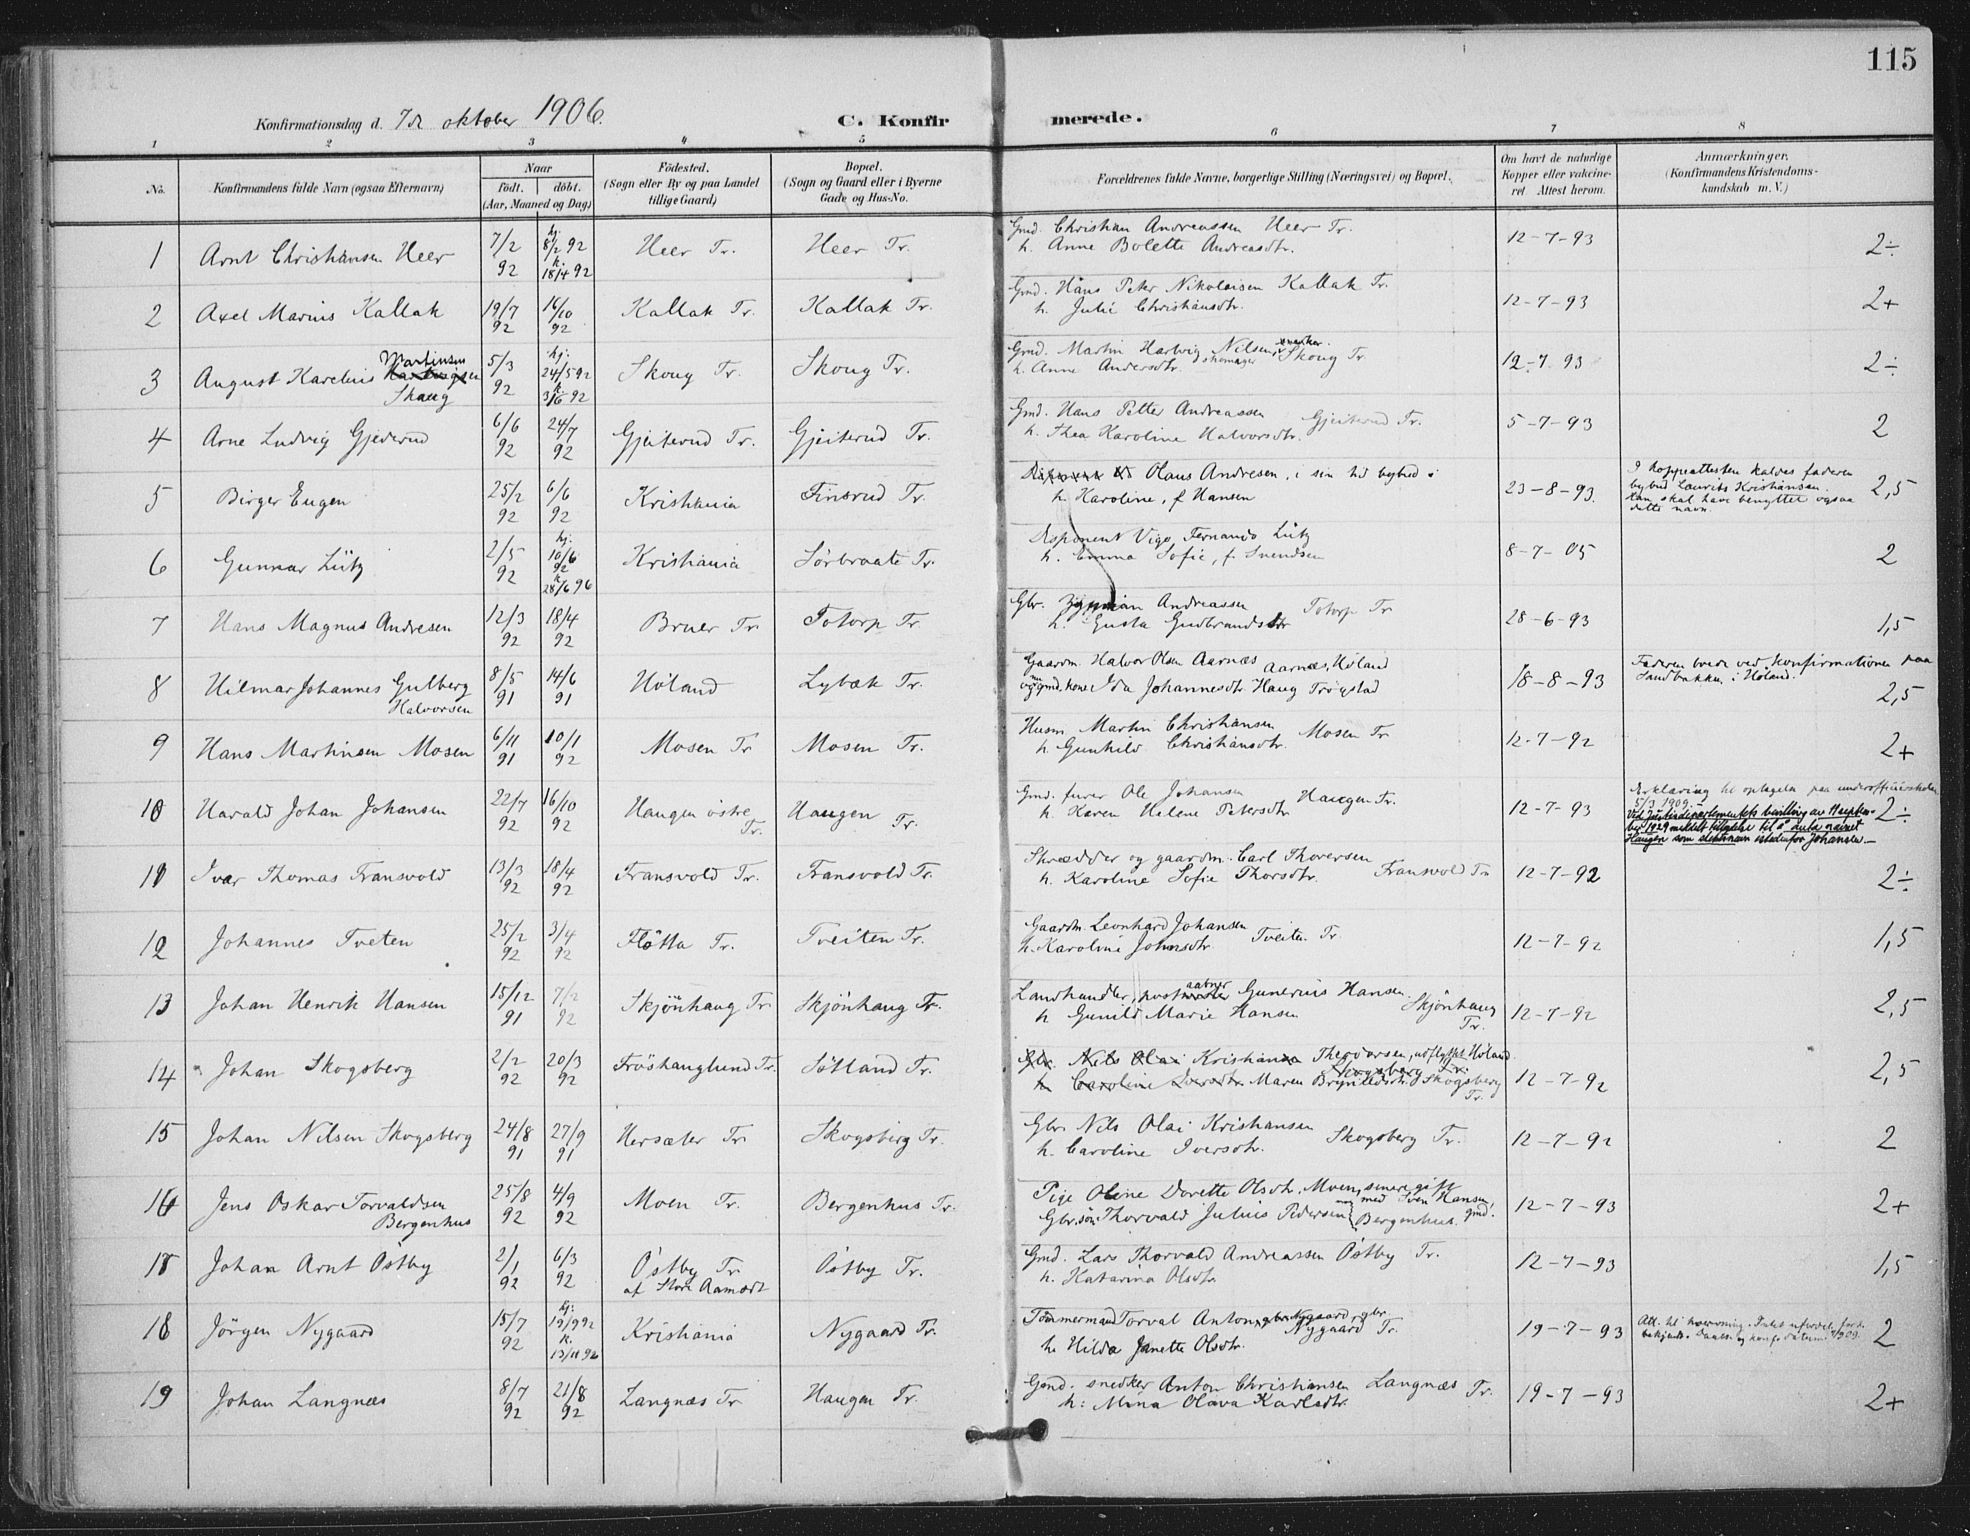 115
Konfirmationsdag d. 7de oktober 1906.
C. Konfirmerede.
1 2 3 4 5 6 7 8
No. | Konfirmandens fulde Navn (ogsaa Efternavn) | Naar födt. döbt. (Aar, Maaned og Dag) | Födested. (Sogn eller By og paa Landet tillige Gaard) | Bopæl. (Sogn og Gaard eller i Byerne Gade og Hus-No. | Forældrenes fulde Navne, borgerlige Stilling (Næringsvei) og Bopæl. | Om havt de naturlige Kopper eller vakcineret Attest herom. | Anmærkninger. (Konfirmandens Kristendomskundskab m. V.)
1 Arnt Christiansen Heer 7/2 92 hj. 8/2 92 k. 18/4 92 Heer Tr. Heer Tr. Gmd. Christian Andreassen Heer Tr. h. Anne Bolette Andreasdtr. 12-7-93 2÷
2 Axel Marius Kallak 19/7 92 16/10 92 Kallak Tr. Kallak Tr. Gmd. Hans Peter Nikolaisen Kallak Tr. h. Julie Christiansdtr. 12-7-93 2+
3 August Karelius Martinsen Skaug 5/3 92 hj. 24/5 92 k. 3/6 92 Skoug Tr. Skoug Tr. Gmd. Martin Hartvig Nilsen, skomager Skoug Tr. h. Anne Andersdtr. 12-7 93 2÷
4 Arne Ludvig Gjederud 6/6 92 24/7 92 Gjeiterud Tr. Gjeiterud Tr. Gmd. Hans Petter Andreassen Gjeiterud Tr. h. Thea Karoline Halvorsdtr. 5-7-93 2
5 Birger Eugen 25/2 92 6/6 92 Kristiania Finsrud Tr. Olaus Andresen, i sin tid bybud i h. Karoline, f. Hansen 23-8-93. I koppeattesten kaldes faderen bybud Laurits Kristiansen. Han skal have benyttet ogsaa dette navn. 2,5
6 Gunnar Lütz 2/5 92 hj. 10/6 92 k. 28/6 96 Kristiania Sörbraate Tr. Disponent Vigo Fernando Lütz h. Emma Sofie, f. Svendsen 8-7-05 2
7 Hans Magnus Andresen 12/3 92 18/4 92 Bruer Tr. Totorp Tr. Gbr. Andreassen Totorp Tr h. Gusta Gudbrandsdtr 28-6-93 1,5
8 Hilmar Johannes Gulberg Halvorsen 8/5 91 14/6 91 Höland Lybæk Tr. Gaardm. Halvor Olsen Aarnæs Aarnæs, Höland og gmd. kone Ida Johannesdtr. Haug Trögstad 18-8-93 Faderen boede ved konfirmationen paa Sandbakken i Höland. 2,5
9 Hans Martinsen Mosen 6/11 91 10/1 92 Mosen Tr Mosen Tr. Husm. Martin Christiansen Mosen Tr h. Gunhild Christiansdtr. 12-7-92 2+
10 Harald Johan Johansen 22/7 92 16/10 92 Haugen östre Tr. Haugen Tr. Gmd. furer Ole Johansen Haugen Tr. h. Karen Helene Petersdtr 12-7-93 Erklæring til optagelse paa underofficerskolen 5/3 1909. Ved Justisdepartementets bevilling av 1929 meddelt tillatelse til å anta navnet Haugen som slektsnavn istedenfor Johansen. 2÷
11 Ivar Thomas Fransvold 13/3 92 18/4 92 Fransvold Tr. Fransvold Tr. Skrædder og gaardm. Carl Thoversen h. Karoline Sofie Thorsdtr. Fransvold Tr 12-7-92 2÷
12 Johannes Tveten 25/2 92 3/4 92 Flötta Tr. Tveiten Tr. Gaardm. Leonhard Johansen h. Karoline Johnsdtr. Tveiten Tr. 12-7-92 1,5
13 Johan Henrik Hansen 15/12 91 7/2 92 Skjönhaug Tr. Skjönhaug Tr. Landhandler, postaabner Gunerius Hansen h Gunild Marie Hansen Skjönhaug Tr. 12-7-92 2,5
14 Johan Skogsberg 2/2 92 20/3 92 Fröshauglund Tr. Sötland Tr. Gbr. Nils Olai Kristian Theodorsen, udflyttet Höland h Caroline Iversdtr. Maren Brynildsdtr. Skogsberg Tr. 12-7-92 2,5
15 Johan Nilsen Skogsberg 24/8 91 27/9 91 Hersæter Tr Skogsberg Tr. Gbr. Nils Olai Kristiansen Skogsberg Tr. h. Caroline Iversdtr. 12-7-92 2
16 Jens Oskar Torvaldsen Bergenhus 25/8 92 4/9 92 Moen Tr. Bergenhus Tr. Pige Oline Dorette Olsdtr. Moen, senere gift med Sven Hansen, gmd. Gbr.sön Thorvald Julius Pedersen Bergenhus. 12-7-93 2+
17 Johan Arnt Östby 2/1 92 6/3 92 Östby Tr af Store Aamodt Östby Tr. Gmd. Lars Thorvald Andreassen Östby Tr. h. Katarina Olsdtr. 12-7-93 1,5
18 Jörgen Nygaard 15/7 92 hj: 19/9 92 k. 13/11 92 Kristiania Nygaard Tr. Tömmermand Torval Anton Nygaard, gbr. Nygaard Tr. h. Hilda Janette Olsdtr. 19-7-93 2
19 Johan Langnæs 8/7 92 21/8 92 Langnæs Tr Haugen Tr. Gmd. snedker Anton Christiansen Langnæs Tr. h: Mina Olava Karlsdtr. 19-7-93 2+